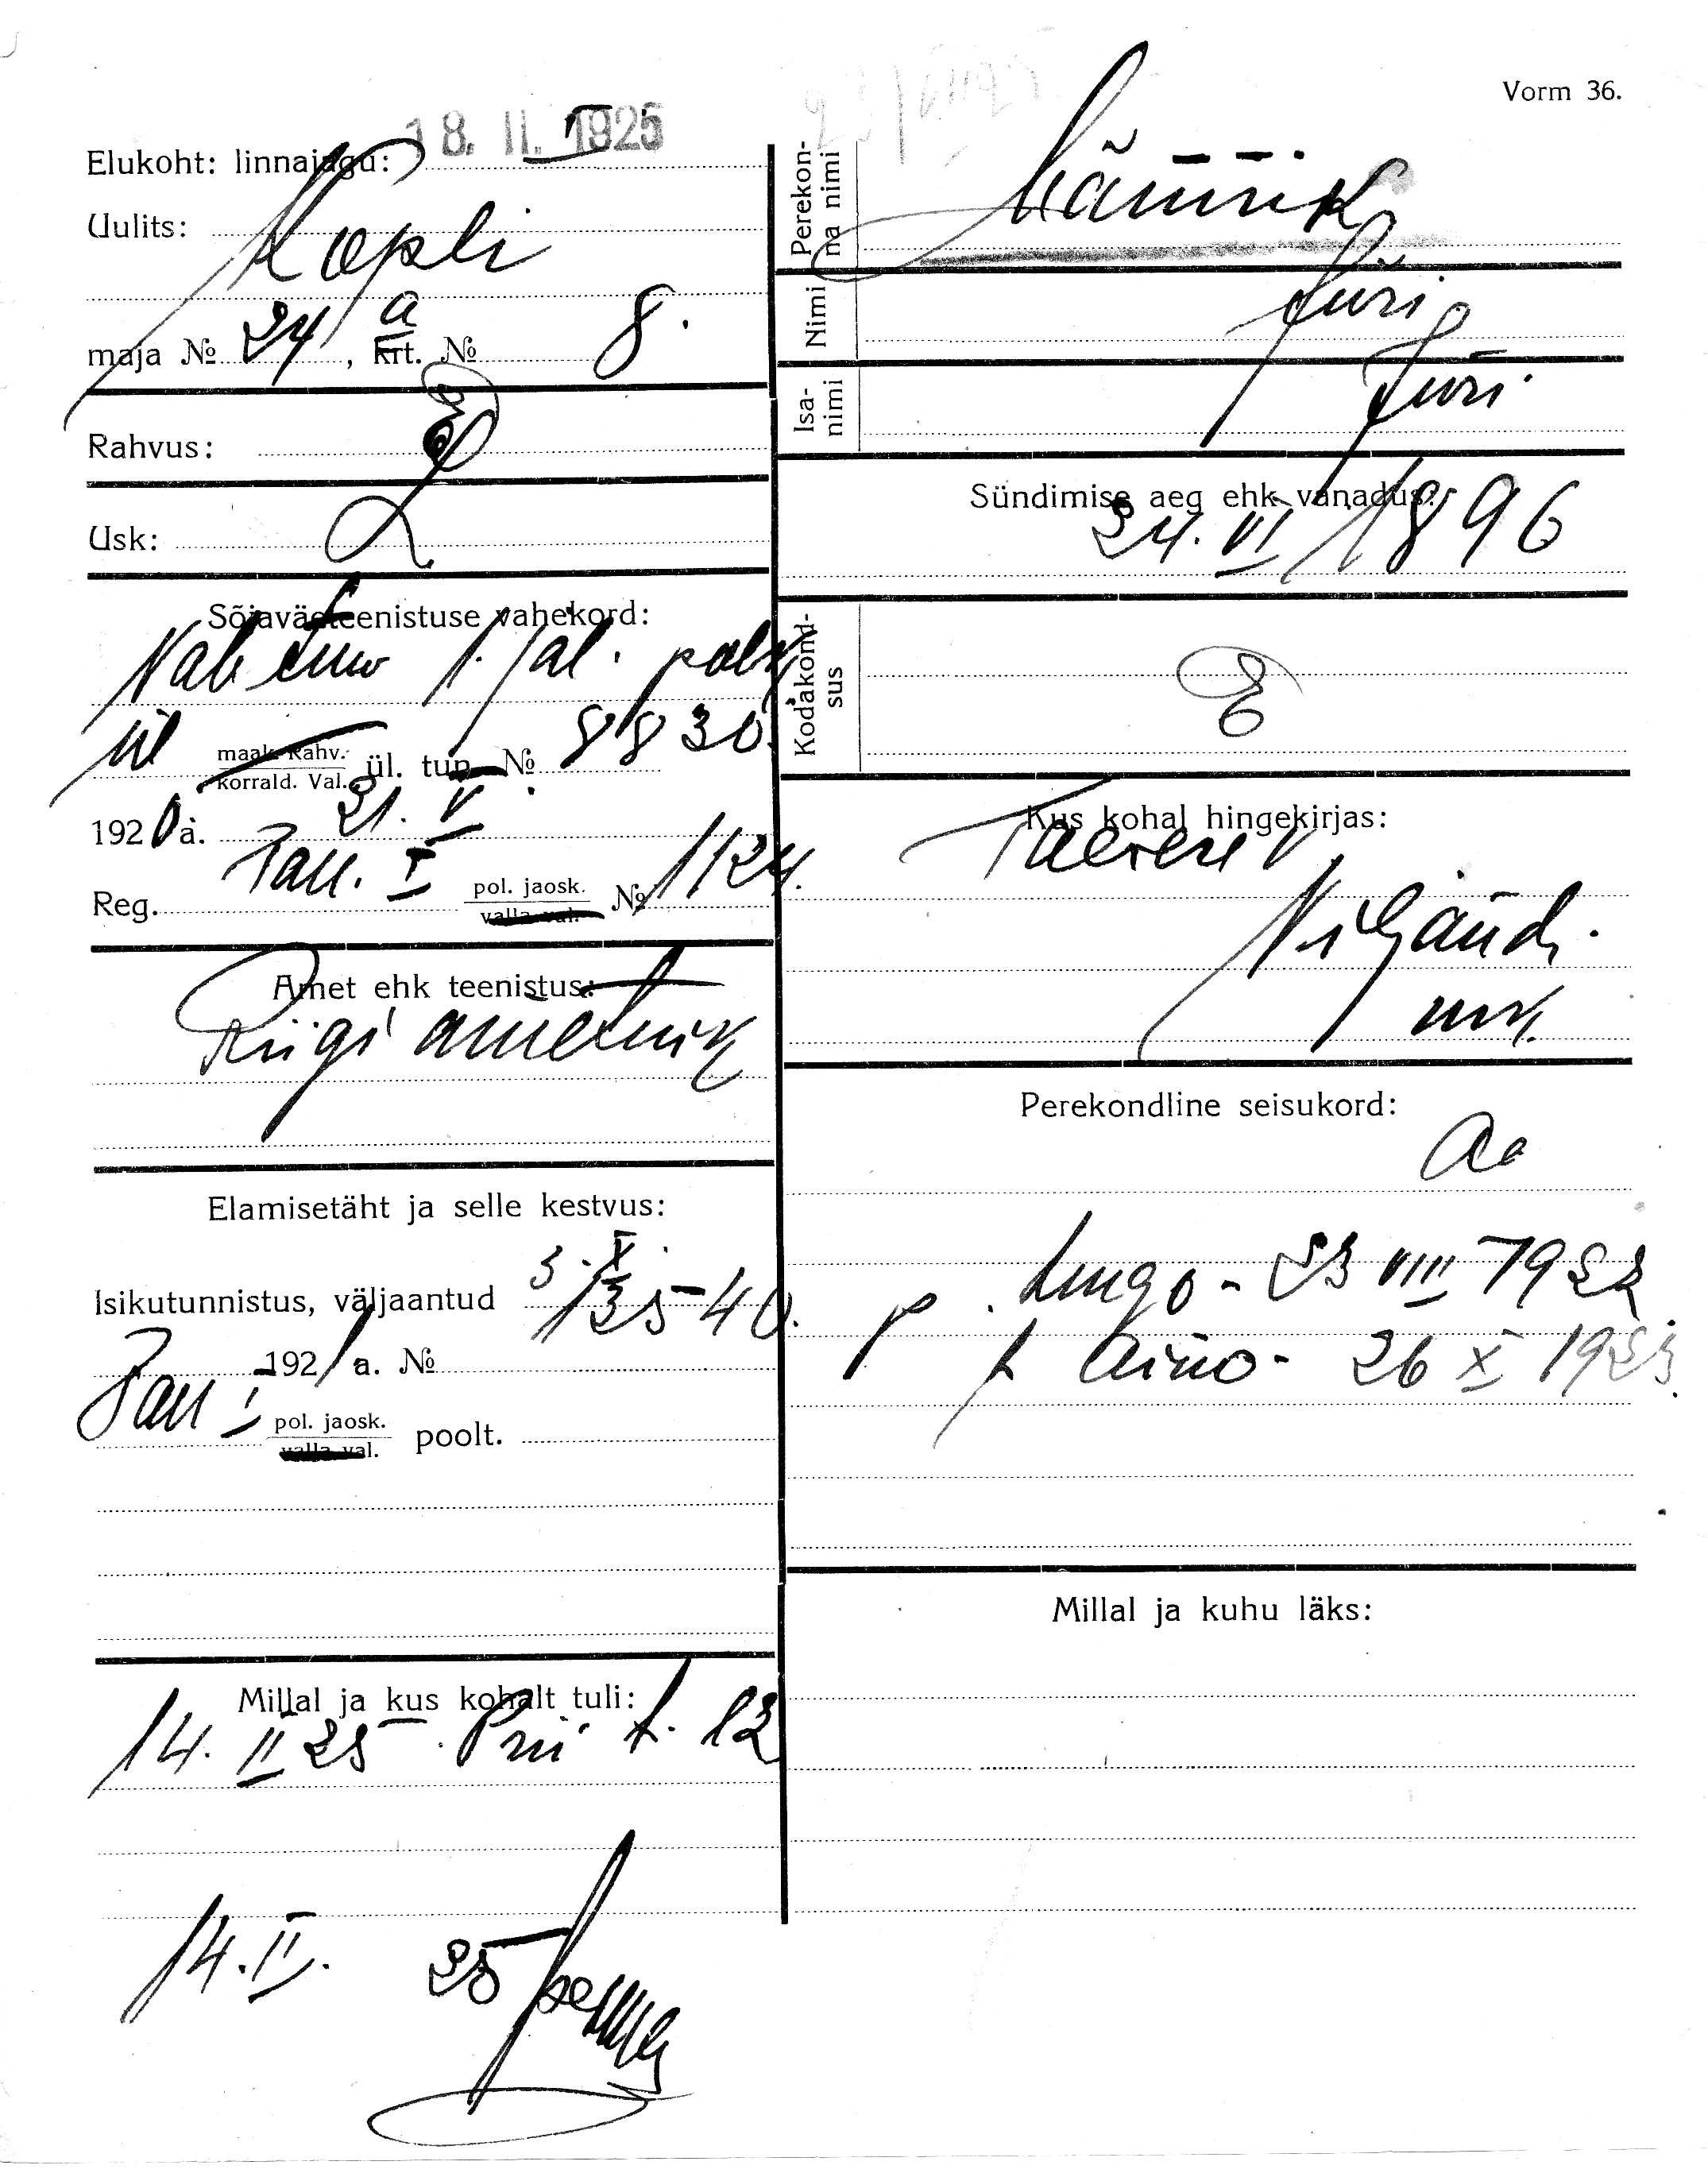 Vorm 36.
18. II. 1925
Elukoht: linnajagu: I
Uulits: Kopli
maja № 24 a, krt. № 8.
Rahvus: E
Usk: L
Sõjaväeteenistuse vahekord:
Vab. 1. jal. polk
ül maak. Rahv. korrald. Val. ül. tun. № 8830.
1920 a. 21. V
Reg. Tall. I pol. jaosk. valla val. № 1124.
Amet ehk teenistus:
Riigi ametnik
Elamisetäht ja selle kestvus:
Isikutunnistus, väljaantud 3. X
192 a. №
Tall I pol. jaosk. valla val. poolt.
Millal ja kus kohalt tuli:
14. II 25. Prii t. 12
14. II. 25
Perekonna nimi
Nimi Jüri
Isanimi Jüri
Sündimise aeg ehk vanadus:
24. VI 1896
Kodakondsus E
Kus kohal hingekirjas:
Viljandi
mk.
Perekondline seisukord:
Aa
p. 23 VIII 1922
t Aino - 26 X 1923.
Millal ja kuhu läks: